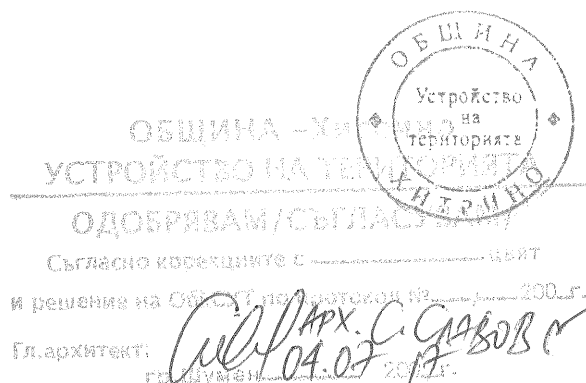 ОБЩИНА
Устройство
на
територията
ХИТРИНО
ОБЩИНА –Хитрино
УСТРОЙСТВО НА ТЕРИТОРИЯТА
ОДОБРЯВАМ/СЪГЛАСУВАМ/
Съгласно корекциите с цвят
и решение на ОбЕСУТ по протокол № 200 г.
Гл.архитект: АРХ. С. СЛАВОВ
гр.Шумен 04.07 17 20 г.